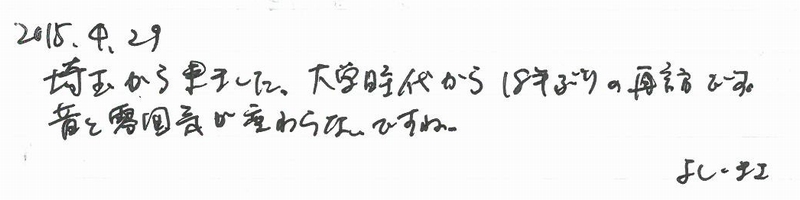 2015.4.29
埼玉から来ました。大学時代から18年ぶりの再訪です。
昔と雰囲気が変わらないですね。